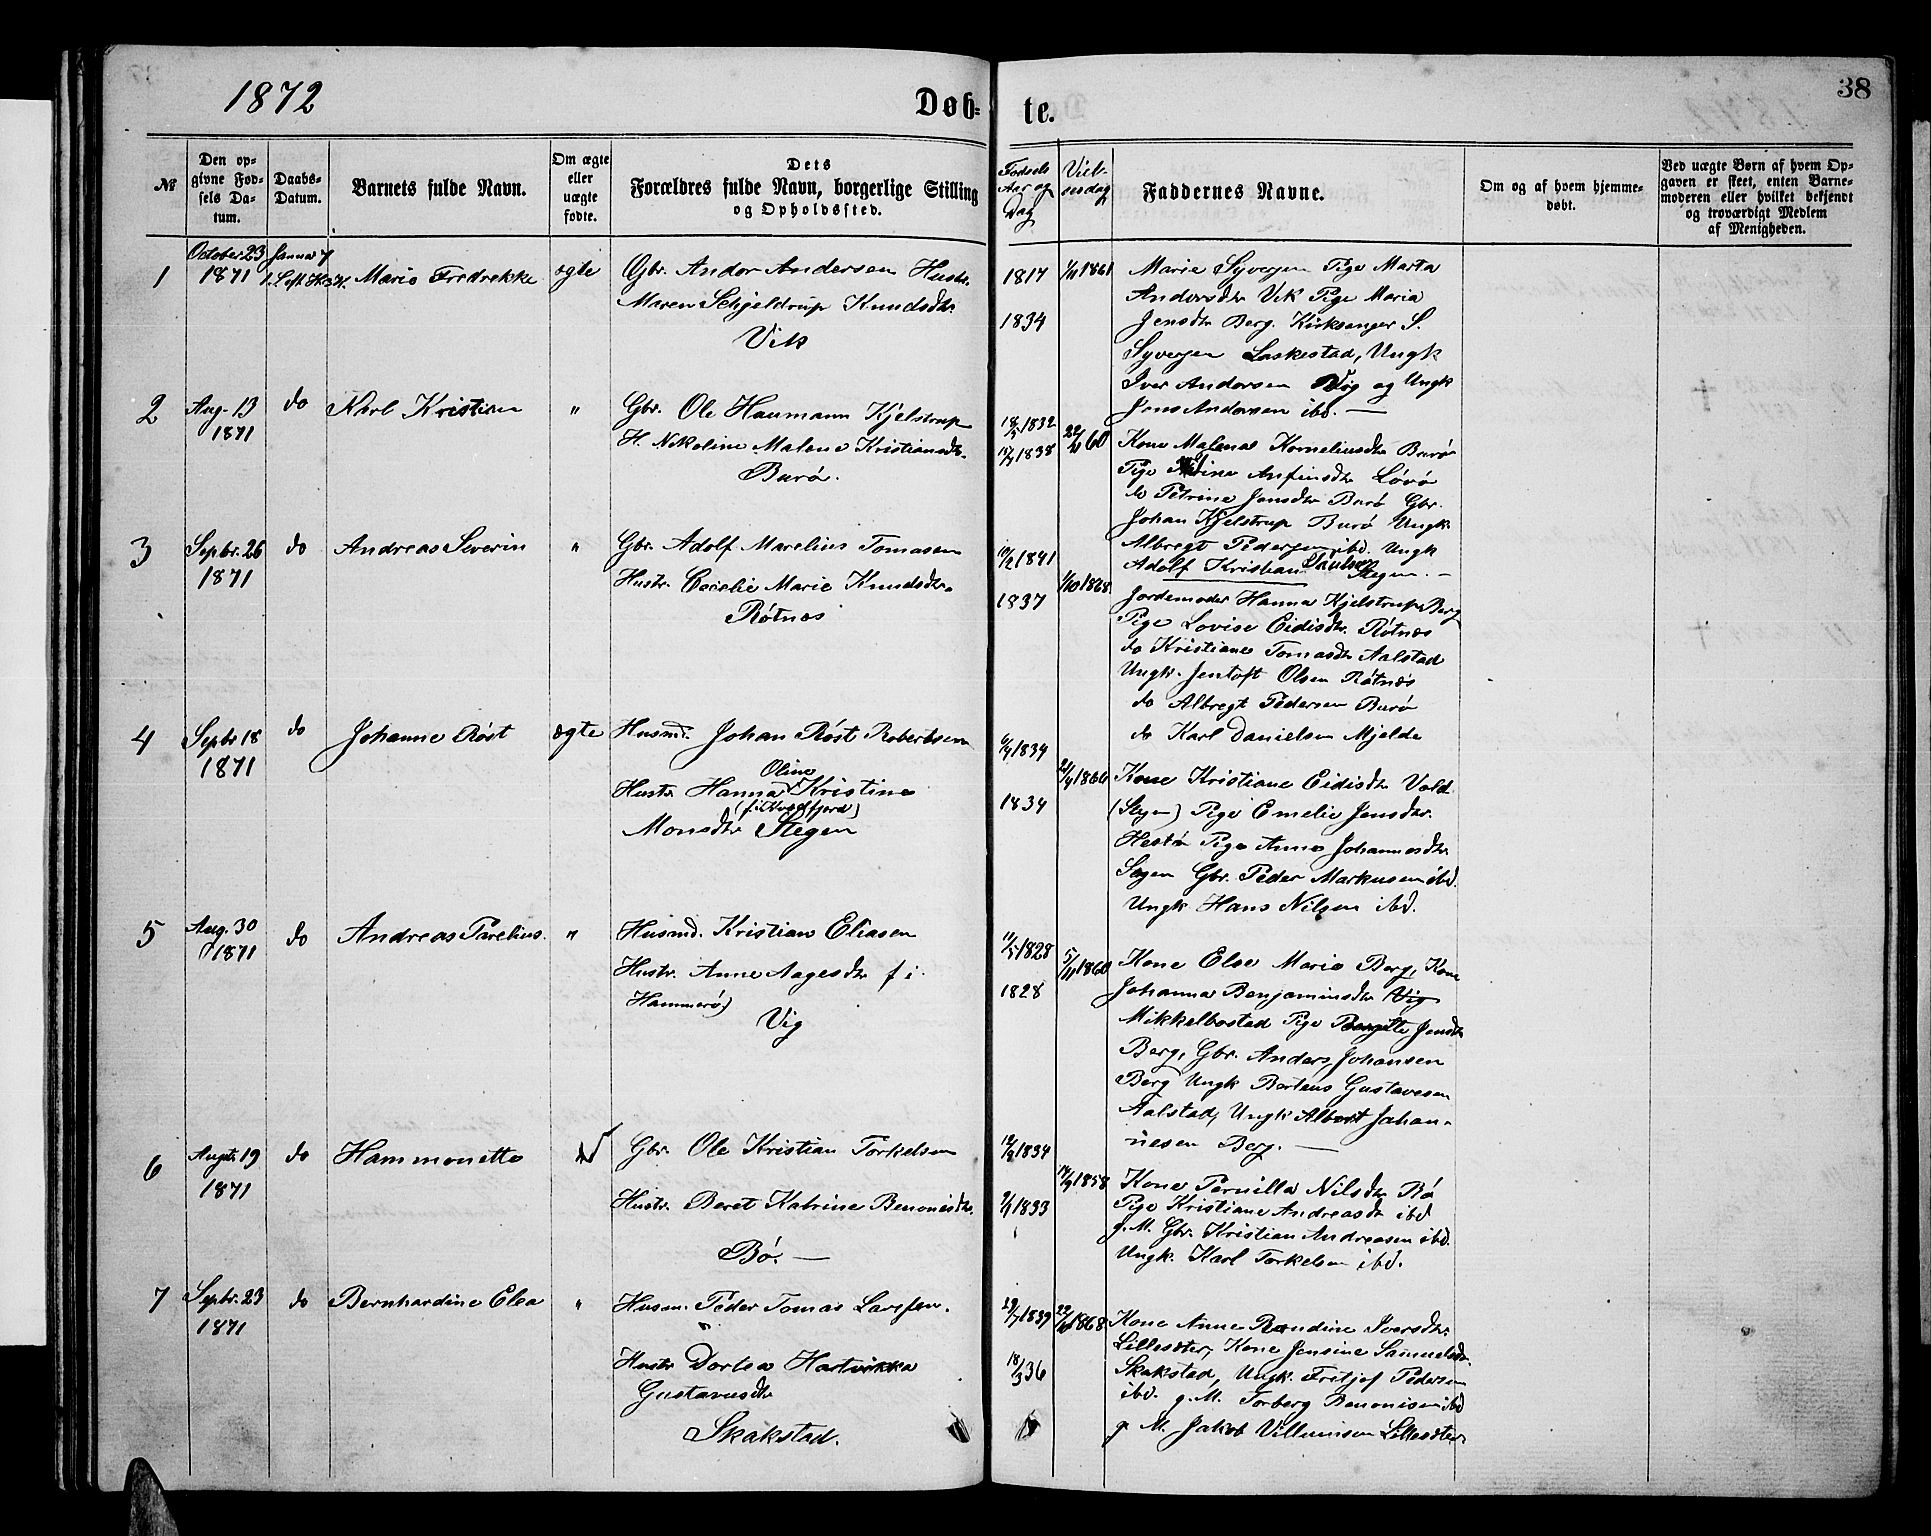 1872
Døb-
te.
38
№
Den op-
givne Fød-
sels Da-
tum.
Daabs-
Datum.
Barnets fulde Navn.
Om ægte
eller
uægte
fødte.
Dets
Forældres fulde Navn, borgerlige Stilling
og Opholdssted.
Fødsels
Aar og
Dag
Viel-
sesdag
Faddernes Navne.
Om og af hvem hjemme-
døbt.
Ved uægte Børn af hvem Op-
gaven er skeet, enten Barne-
moderen eller hvilket bekjendt
og troværdigt Medlem
af Menigheden.
1
October 23
1871
Januar 7
Marie Fredrekke
ægte
Gbr. Andor Andersen Hustr.
Maren Schjeldrup Knudsdtr.
Vik
1817
1834
1/11 1861
Marie Syversen Pige Marta
Andersdtr Vik Pige Maria
Jensdtr Berg. Kirksanger S.
Syversen Laskestad, Ungk
Iver Andersen Vig og Ungk
Jens Andersen ibd. —
2
Aug. 13
1871
do
Karl Kristian
"
Gbr. Ole Haumann Kjelstrup
H. Nikoline Malene Kristiansdtr.
Burø.
18/5 1832
1838
60
Kone Malena Korneliusdtr Burø
Pige Anfinsdtr Løvø
do Petrine Jensdtr Burø Gbr.
Johan Kjelstrup Burø Ungk
Albregt Pedersen ibd. Ungk
Adolf Kristian Paulsen Stegen. —
3
Sepbr. 26
1871
do
Andreas Severin
"
Gbr. Adolf Marelius Tomasen
Hustr. Cecelie Marie Knudsdtr.
Røtnes
19/2 1841
1837
1/10 1868
Jordemoder Hanna Kjelstrup Berg
Pige Lovise Eidisdtr. Røtnes
do Kristiane Tomasdtr Aalstad
Ungk. Jentoft Olsen Røtnes
do Albregt Pedersen Burø
do Karl Danielsen Mjelde
4
Sepbr 18
1871
do
Johanne Røst
ægte
Husmd. Johan Røst Robertsen
Oline
Hustr Hanna Kristine
(f. i Kvedfjord)
Monsdtr Stegen
6/9 1834
1834
1860
Kone Kristiane Eidisdtr Vold
(Stegen) Pige Emelie Jensdtr.
Hestø Pige Anne Johannesdtr.
Stegen Gbr. Peder Markusen ibd.
Ungk Hans Nilsen ibd.
5
Aug. 30
1871
do
Andreas Parelius.
"
Husmd. Kristian Eliasen
Hustr. Anne Aagesdtr f i
Hammerø)
Vig
11/5 1828
1828
5/11 1860
Kone Else Marie Berg, Kone
Johanna Benjaminsdtr Vig
Mikkelbostad Pige Bergitte Jensdtr
Berg, Gbr. Anders Johansen
Berg Ungk Berteus Gustavesen
Aalstad, Ungk Albert Johan-
nesen Berg. —
6
Augst. 19
1871
do
Hammonette
Gbr. Ole Kristian Torkelsen
Hustr. Beret Katrine Benonisdtr.
Bø. —
1834
1833
1858
Kone Pernilla Nilsdtr Bø
Pige Kristiane Andreasdtr ibd
g. M. Gbr. Kristian Andreasen ibd.
Ungk. Karl Torkelsen ibd.
7
Sepbr. 23
1871
do
Bernhardine Elea
"
Husm. Peder Tomas Larssen.
Hustr Dortea Hartvikka
Gustavusdtr
Skakstad.
29/7 1839
18/3 36
1868
Kone Anne Randine Iversdtr.
Lillesdter, Kone Jensine Samuelsdtr
Skakstad, Ungk. Fritjof Pedersen
ibd. g. M. Torberg Benonisen ibd
g M. Jakob Villumsen Lillesdter